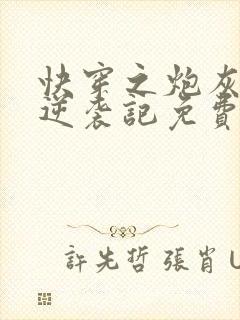 快穿之炮灰
逆袭記免費
許先哲 張肖 U